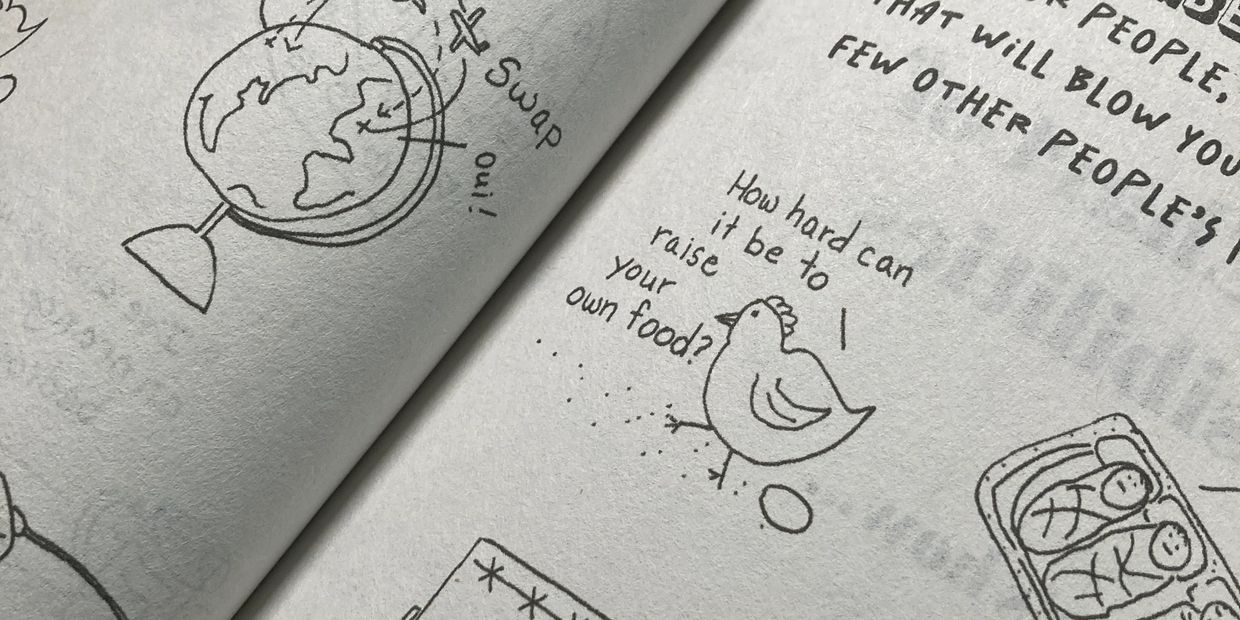 Swap
Oui!
PEOPLE,
THAT WILL BLOW
FEW OTHER PEOPLE'S
How hard can
it be to
raise
your
own food?